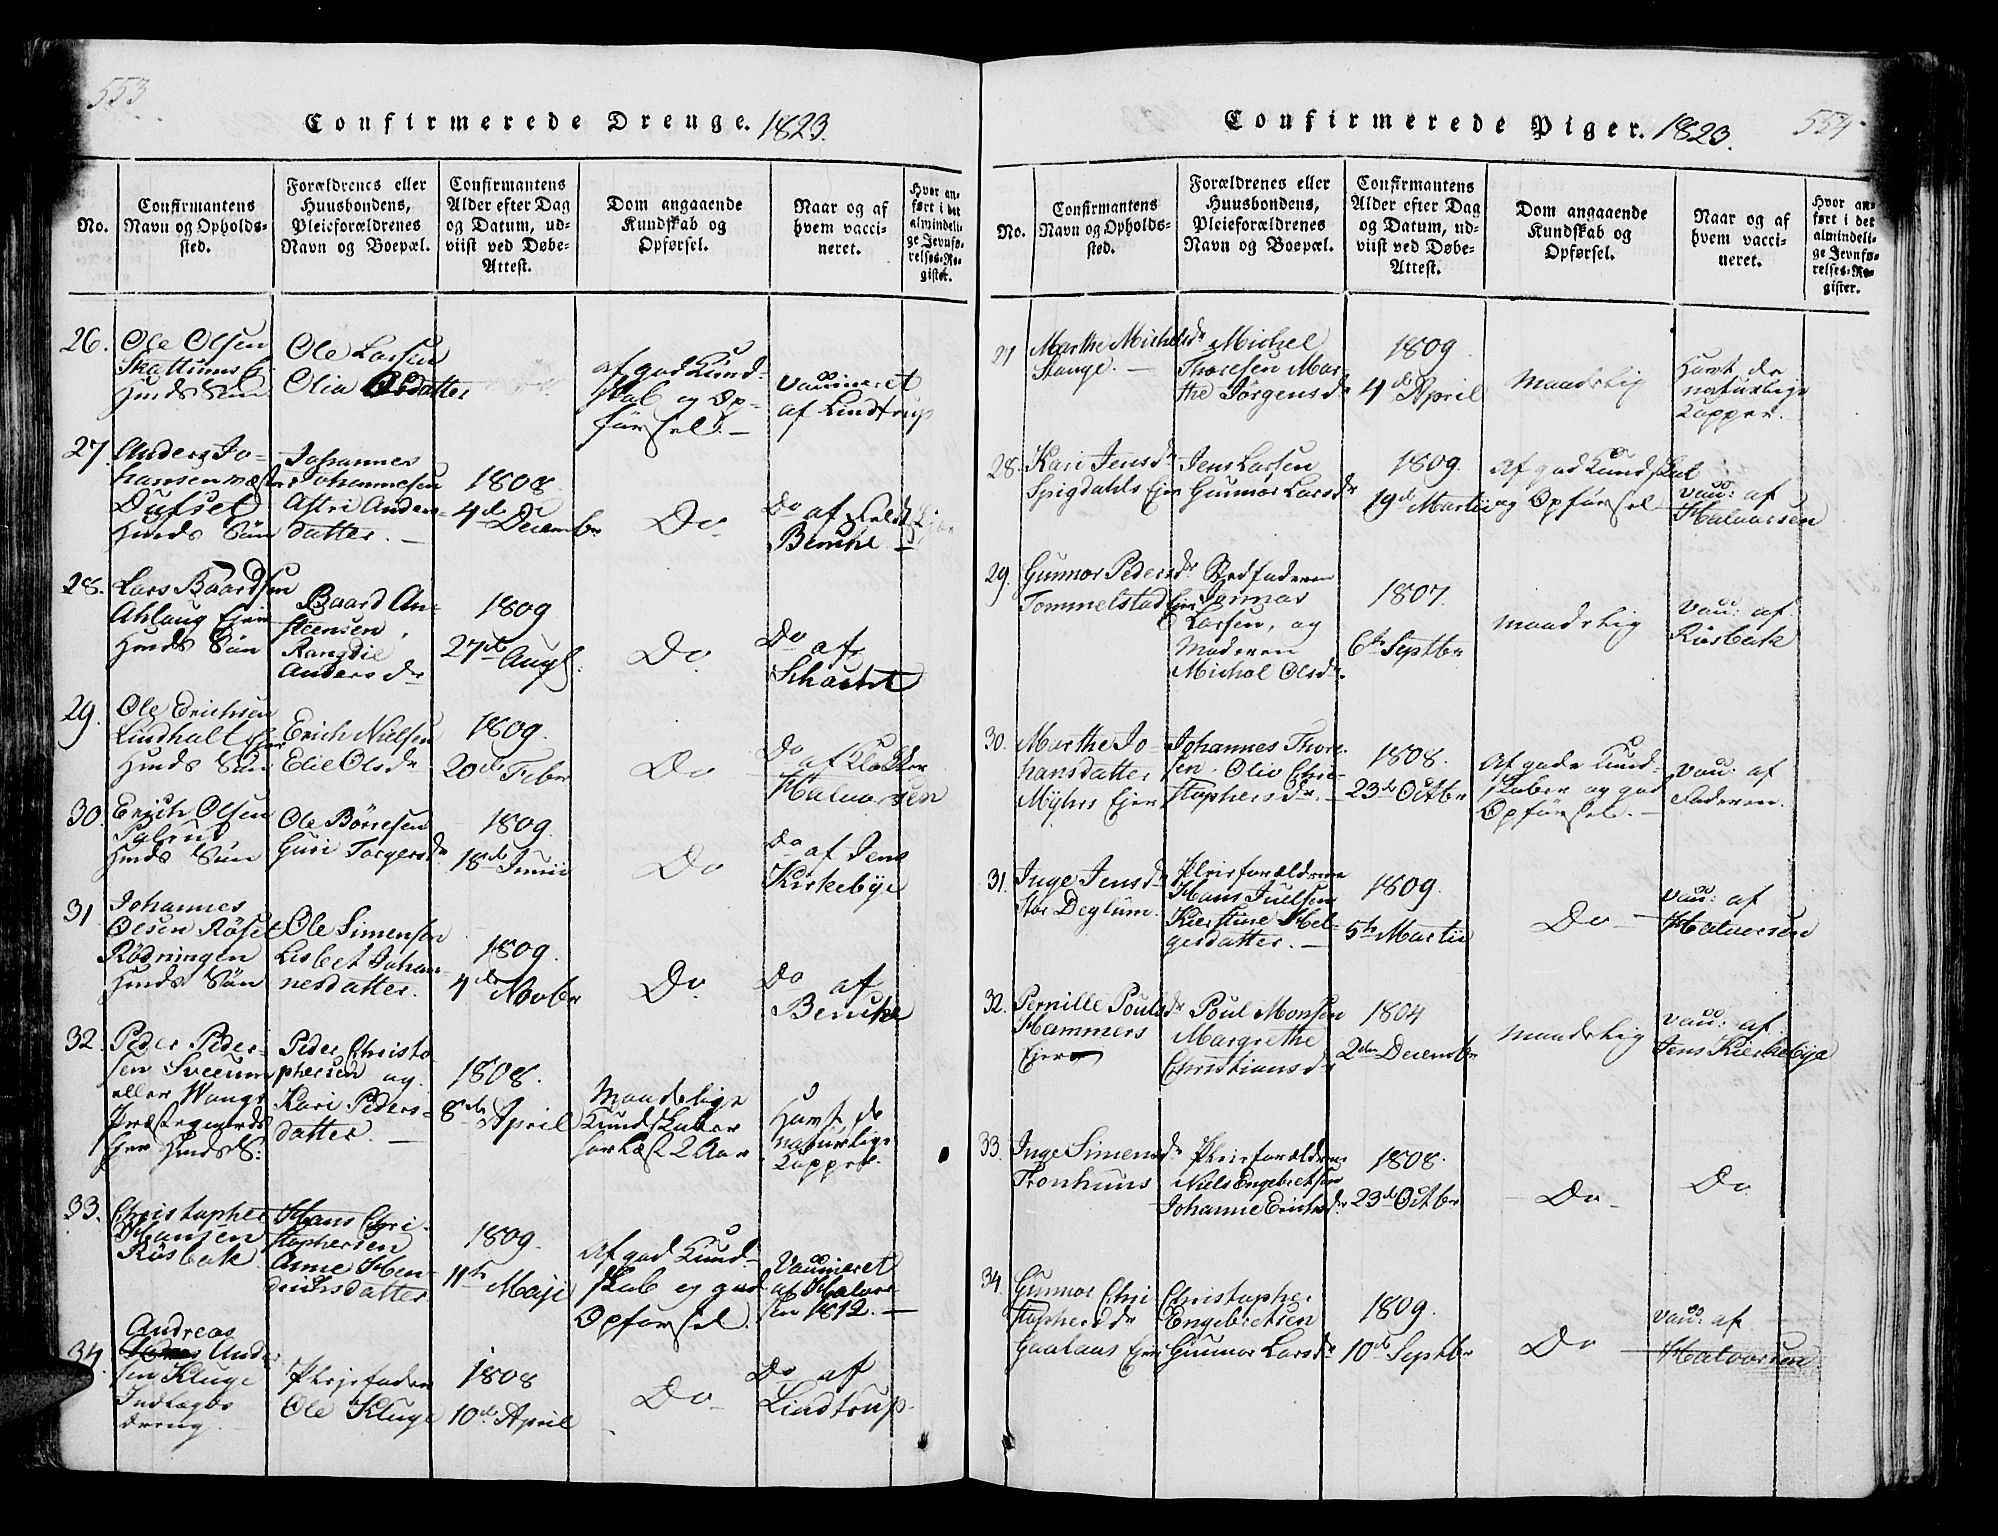 553
Confirmerede Drenge. 1823.
No.
Confirmantens
Navn og Opholds-
sted.
Forældrenes eller
Huusbondens,
Pleieforældrenes
Navn og Boepæl.
Confirmantens
Alder efter Dag
og Datum, ud-
viist ved Døbe-
Attest.
Dom angaaende
Kundskab og
Opførsel.
Naar og af
hvem vacci-
neret.
Hvor an-
ført i det
almindeli-
ge Jevnfø-
relses-Re-
gister.
26.
Ole Olsen
Skattums
Huusm Søn
Ole Larsen
Olia Olsdatter
af god Kund-
skab og Op-
førsel. -
Vaccineret
af Lindtrup
27.
Anders Jo-
hansen
Dufset
Johannes
Johannesen
Astri Anders-
datter. -
1808
4de Decembr
Do
Do af
Bencke -
28.
Lars Baardsen
Ahlaug Ejer
Baard An-
steensen,
Rangdie
Andersdr
1809
27de Augl.
Do
Do af
Schacht
29.
Ole Erichsen
Lindholt Ejer
Erich Nielsen
Elie Olsdr
1809.
20de Febr
Do
Do
af Klokker
Halvorsen
30.
Erich Olsen
Ole Børresen
Guri Torgersdr
1809.
18de Junii
Do
Do af Jens
Kirkebye
31
Johannes
Olsen Røset
Rødningen
Ole Simensen
Lisbet Johan-
nesdatter.
1809.
4de Novbr
Do
Do af
Bencke
32.
Peder Peder-
sen Sveum
eller Wangs
Præstegaards
Peder Christo-
phersen og
Kari Peders-
datter. -
1808.
8de April
Maadelige
Kundskaber
har læst 2 Aar
Havt de
naturlige
Kopper.
33.
Christopher
Hansen
Rûsbak
Hans Chri-
stophersen
Anne Hen-
drichsdatter
1809.
11te Maji
Af god Kund-
skab og god
Opførsel.
Vaccineret
af Halvor-
sen 1812. -
34.
Andreas
Ander-
sen Kluge
Indtagbs
dreng
Plejefader
Ole Kluge
1808
10de April
Do
Do af
Lindtrup
Confirmerede Piger. 1823.
554
No.
Confirmantens
Navn og Opholds-
sted.
Forældrenes eller
Huusbondens,
Pleieforældrenes
Navn og Boepæl.
Confirmantens
Alder efter Dag
og Datum, ud-
viist ved Døbe-
Attest.
Dom angaaende
Kundskab og
Opførsel.
Naar og af
hvem vacci-
neret.
Hvor an-
ført i det
almindeli-
ge Jevnfø-
relses-Re-
gister.
27
Marthe Michelsdr
Stange. -
Michel
Thoresen Mar-
the Jørgensdr
1809
4de April
Maadelig
Havt de
naturlige
Kopper.
28.
Kari Jensdr
Spigdahls Ejer
Jens Larsen
Gunnor Larsdr
1809.
19de Martii
Af god Kundskab
og Opførsel
Vacc: af
Halvorsen
29.
Gunnor Pedersdr
Tommelstad Ejer
Stedfaderen
Larsen, og
Moderen
Michol Olsdr.
1807.
6te Septbr
Maadelig
Vacc: af
Rûsbak
30.
Marthe Jo-
hansdatter
Myhrs Ejer
Johannes Thore-
sen. Oliv Chri-
stophersdr. -
1808.
23de Octbr
Af gode Kund-
skaber og god
Opførsel. -
Vacc: af
Faderen.
31.
Inge Jensdr
Stor Deglum.
Plejeforældrene
Hans Juelsen
Kierstine Hel-
gesdatter. -
1809.
5te Martii
Do -
Vacc: af
Halvorsen
32.
Pernille Poulsdr
Hammers
Ejer
Poul Monsen
Margrethe
Christiansdr
1804
2den Decembr
Maadelig
Vacc: af
Jens Kirkebye
33.
Inge Simensdr
Tronhuus
Plejeforældrene
Niels Engebretsen
Johanne Erichsdr.
1808.
23de Octbr
Do
Do
34.
Gunnor Chri-
stophersdr
Gaalaas Ejer
Christopher
Engebretsen
Gunnor Larsdr
1809.
10de Septbr
Do
Vacc: af
Halvorsen